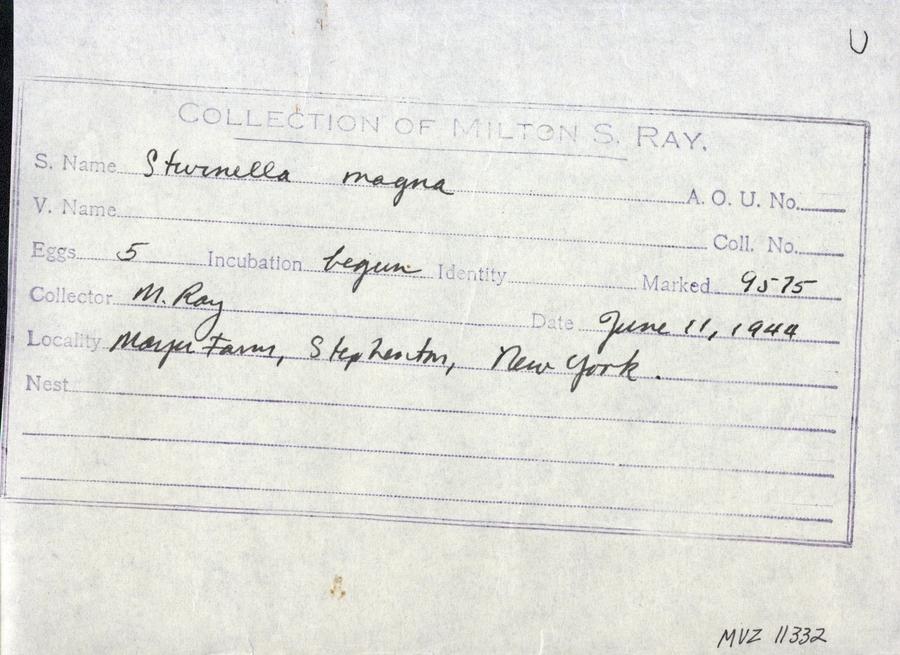 U
COLLECTION OF MILTON S. RAY.
S. Name Sturnella magna A. O. U. No.
V. Name Coll. No.
Eggs 5 Incubation begun Identity Marked 95-75
Collector M. Ray Date June 11, 1944
Locality Farm, Stephenton, New York.
Nest
MVZ 11332